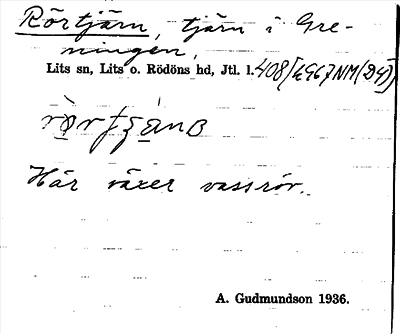 Rörtjärn, tjärn i Gre-
ningen,
Lits sn, Lits o. Rödöns hd, Jtl. l. 408/4967NM(D4)
Här växer vassrör.
A. Gudmundson 1936.